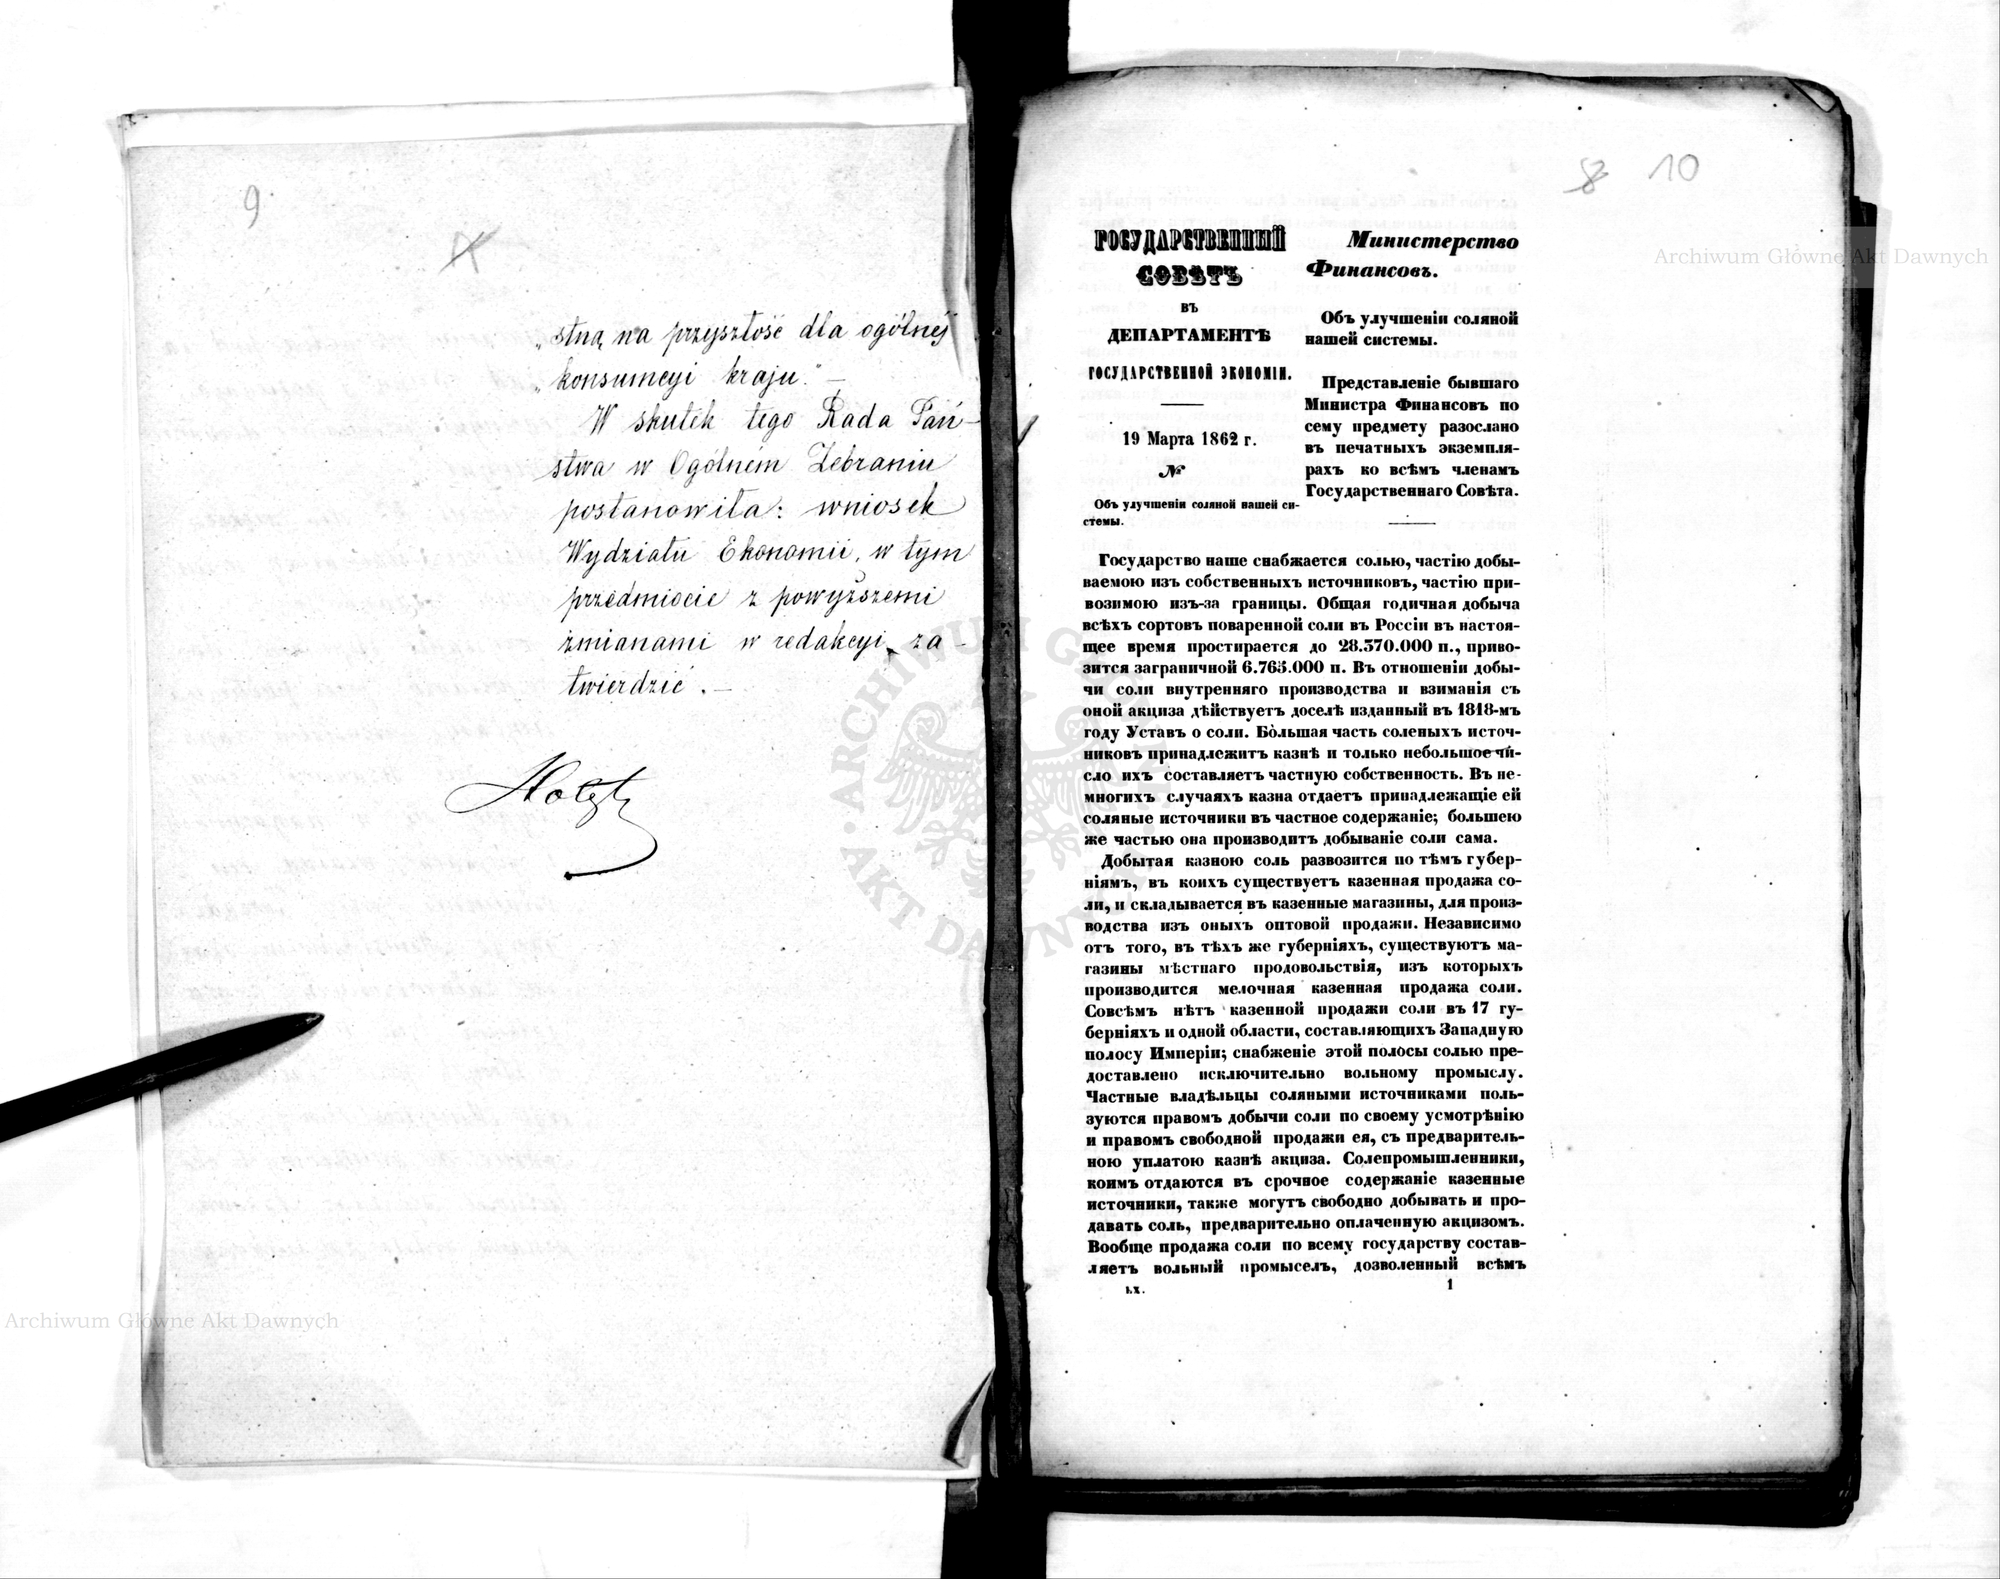 9
„stną na przyszłość dla ogólnej
„konsumcyi kraju." —
W skutek tego Rada Pań-
stwa w Ogólném Zebraniu
postanowiła: wniosek
Wydziału Ekonomii, w tym
przedmiocie z powyższemi
zmianami w redakcyi za-
twierdzić. —
8 10
ГОСУДАРСТВЕННЫЙ
СОВѢТЪ
ВЪ
ДЕПАРТАМЕНТѢ
ГОСУДАРСТВЕННОЙ ЭКОНОМІИ.
19 Марта 1862 г.
№
Объ улучшеніи соляной нашей си-
стемы.
Министерство
Финансовъ.
Объ улучшеніи соляной
нашей системы.
Представленіе бывшаго
Министра Финансовъ по
сему предмету разослано
въ печатныхъ экземпля-
рахъ ко всѣмъ членамъ
Государственнаго Совѣта.
Государство наше снабжается солью, частію добы-
ваемою изъ собственныхъ источниковъ, частію при-
возимою изъ-за границы. Общая годичная добыча
всѣхъ сортовъ поваренной соли въ Россіи въ настоя-
щее время простирается до 28.370.000 п., приво-
зится заграничной 6.765.000 п. Въ отношеніи добы-
чи соли внутренняго производства и взиманія съ
оной акциза дѣйствуетъ доселѣ изданный въ 1818-мъ
году Уставъ о соли. Бо̀льшая часть соленыхъ источ-
никовъ принадлежитъ казнѣ и только небольшое чи-
сло ихъ составляетъ частную собственность. Въ не-
многихъ случаяхъ казна отдаетъ принадлежащіе ей
соляные источники въ частное содержаніе; большею
же частью она производитъ добываніе соли сама.
Добытая казною соль развозится по тѣмъ губер-
ніямъ, въ коихъ существуетъ казенная продажа со-
ли, и складывается въ казенные магазины, для произ-
водства изъ оныхъ оптовой продажи. Независимо
отъ того, въ тѣхъ же губерніяхъ, существуютъ ма-
газины мѣстнаго продовольствія, изъ которыхъ
производится мелочная казенная продажа соли.
Совсѣмъ нѣтъ казенной продажи соли въ 17 гу-
берніяхъ и одной области, составляющихъ Западную
полосу Имперіи; снабженіе этой полосы солью пре-
доставлено исключительно вольному промыслу.
Частные владѣльцы соляными источниками поль-
зуются правомъ добычи соли по своему усмотрѣнію
и правомъ свободной продажи ея, съ предваритель-
ною уплатою казнѣ акциза. Солепромышленники,
коимъ отдаются въ срочное содержаніе казенные
источники, также могутъ свободно добывать и про-
давать соль, предварительно оплаченную акцизомъ.
Вообще продажа соли по всему государству состав-
ляетъ вольный промыселъ, дозволенный всѣмъ
1
Archiwum Główne Akt Dawnych
Archiwum Główne Akt Dawnych
ARCHIWUM GŁÓWNE AKT DAWNYCH